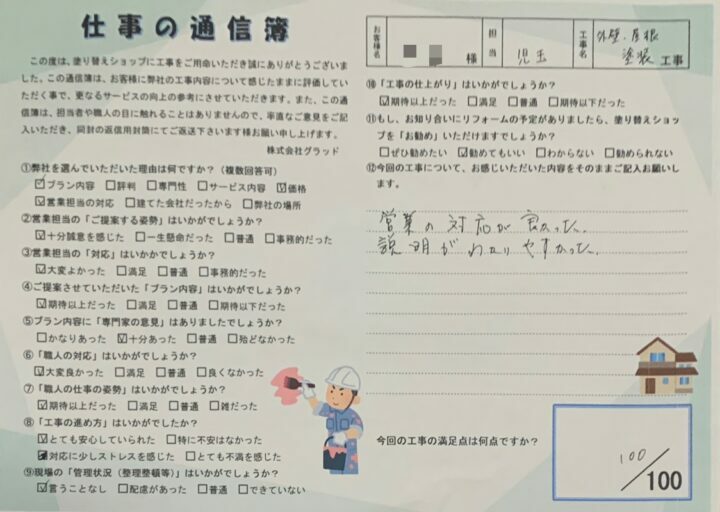 仕事の通信簿
この度は、塗り替えショップに工事をご用命いただき誠にありがとうございま
した。この通信簿は、お客様に弊社の工事内容について感じたままに評価してい
ただく事で、更なるサービスの向上の参考にさせていただきます。また、この通
信簿は、担当者や職人の目に触れることはありませんので、率直なご意見をご記
入いただき、同封の返信用封筒にてご返送下さいます様お願い申し上げます。
株式会社グラッド
①弊社を選んでいただいた理由は何ですか?(複数回答可)
☑プラン内容 □評判 □専門性 □サービス内容 ☑価格
☑営業担当の対応 □建てた会社だったから □弊社の場所
②営業担当の「ご提案する姿勢」はいかがでしょうか?
☑十分誠意を感じた □一生懸命だった □普通 □事務的だった
③営業担当の「対応」はいかかでしょうか?
☑大変よかった □満足 □普通 □事務的だった
④ご提案させていただいた「プラン内容」はいかがでしょうか?
☑期待以上だった □満足 □普通 □期待以下だった
⑤プラン内容に「専門家の意見」はありましたでしょうか?
□かなりあった ☑十分あった □普通 □殆どなかった
⑥「職人の対応」はいかがでしょうか?
☑大変良かった □満足 □普通 □良くなかった
⑦「職人の仕事の姿勢」はいかがでしょうか?
☑期待以上だった □満足 □普通 □雑だった
⑧「工事の進め方」はいかがでしたか?
☑とても安心していられた □特に不安はなかった
対応に少しストレスを感じた □とても不満を感じた
⑨現場の「管理状況(整理整頓等)」はいかがでしょうか?
☑言うことなし □配慮があった □普通 □できていない
お客様名 様 担当 児玉 工事名 外壁・屋根
塗装 工事
⑩「工事の仕上がり」はいかがでしょうか?
☑期待以上だった □満足 □普通 □期待以下だった
⑪もし、お知り合いにリフォームの予定がありましたら、塗り替えショッ
プを「お勧め」いただけますでしょうか?
□ぜひ勧めたい ☑勧めてもいい □わからない □勧められない
⑫今回の工事について、お感じいただいた内容をそのままご記入お願いし
ます。
営業の対応が良かった。
説明がわかりやすかった。
今回の工事の満足点は何点ですか?
100/100